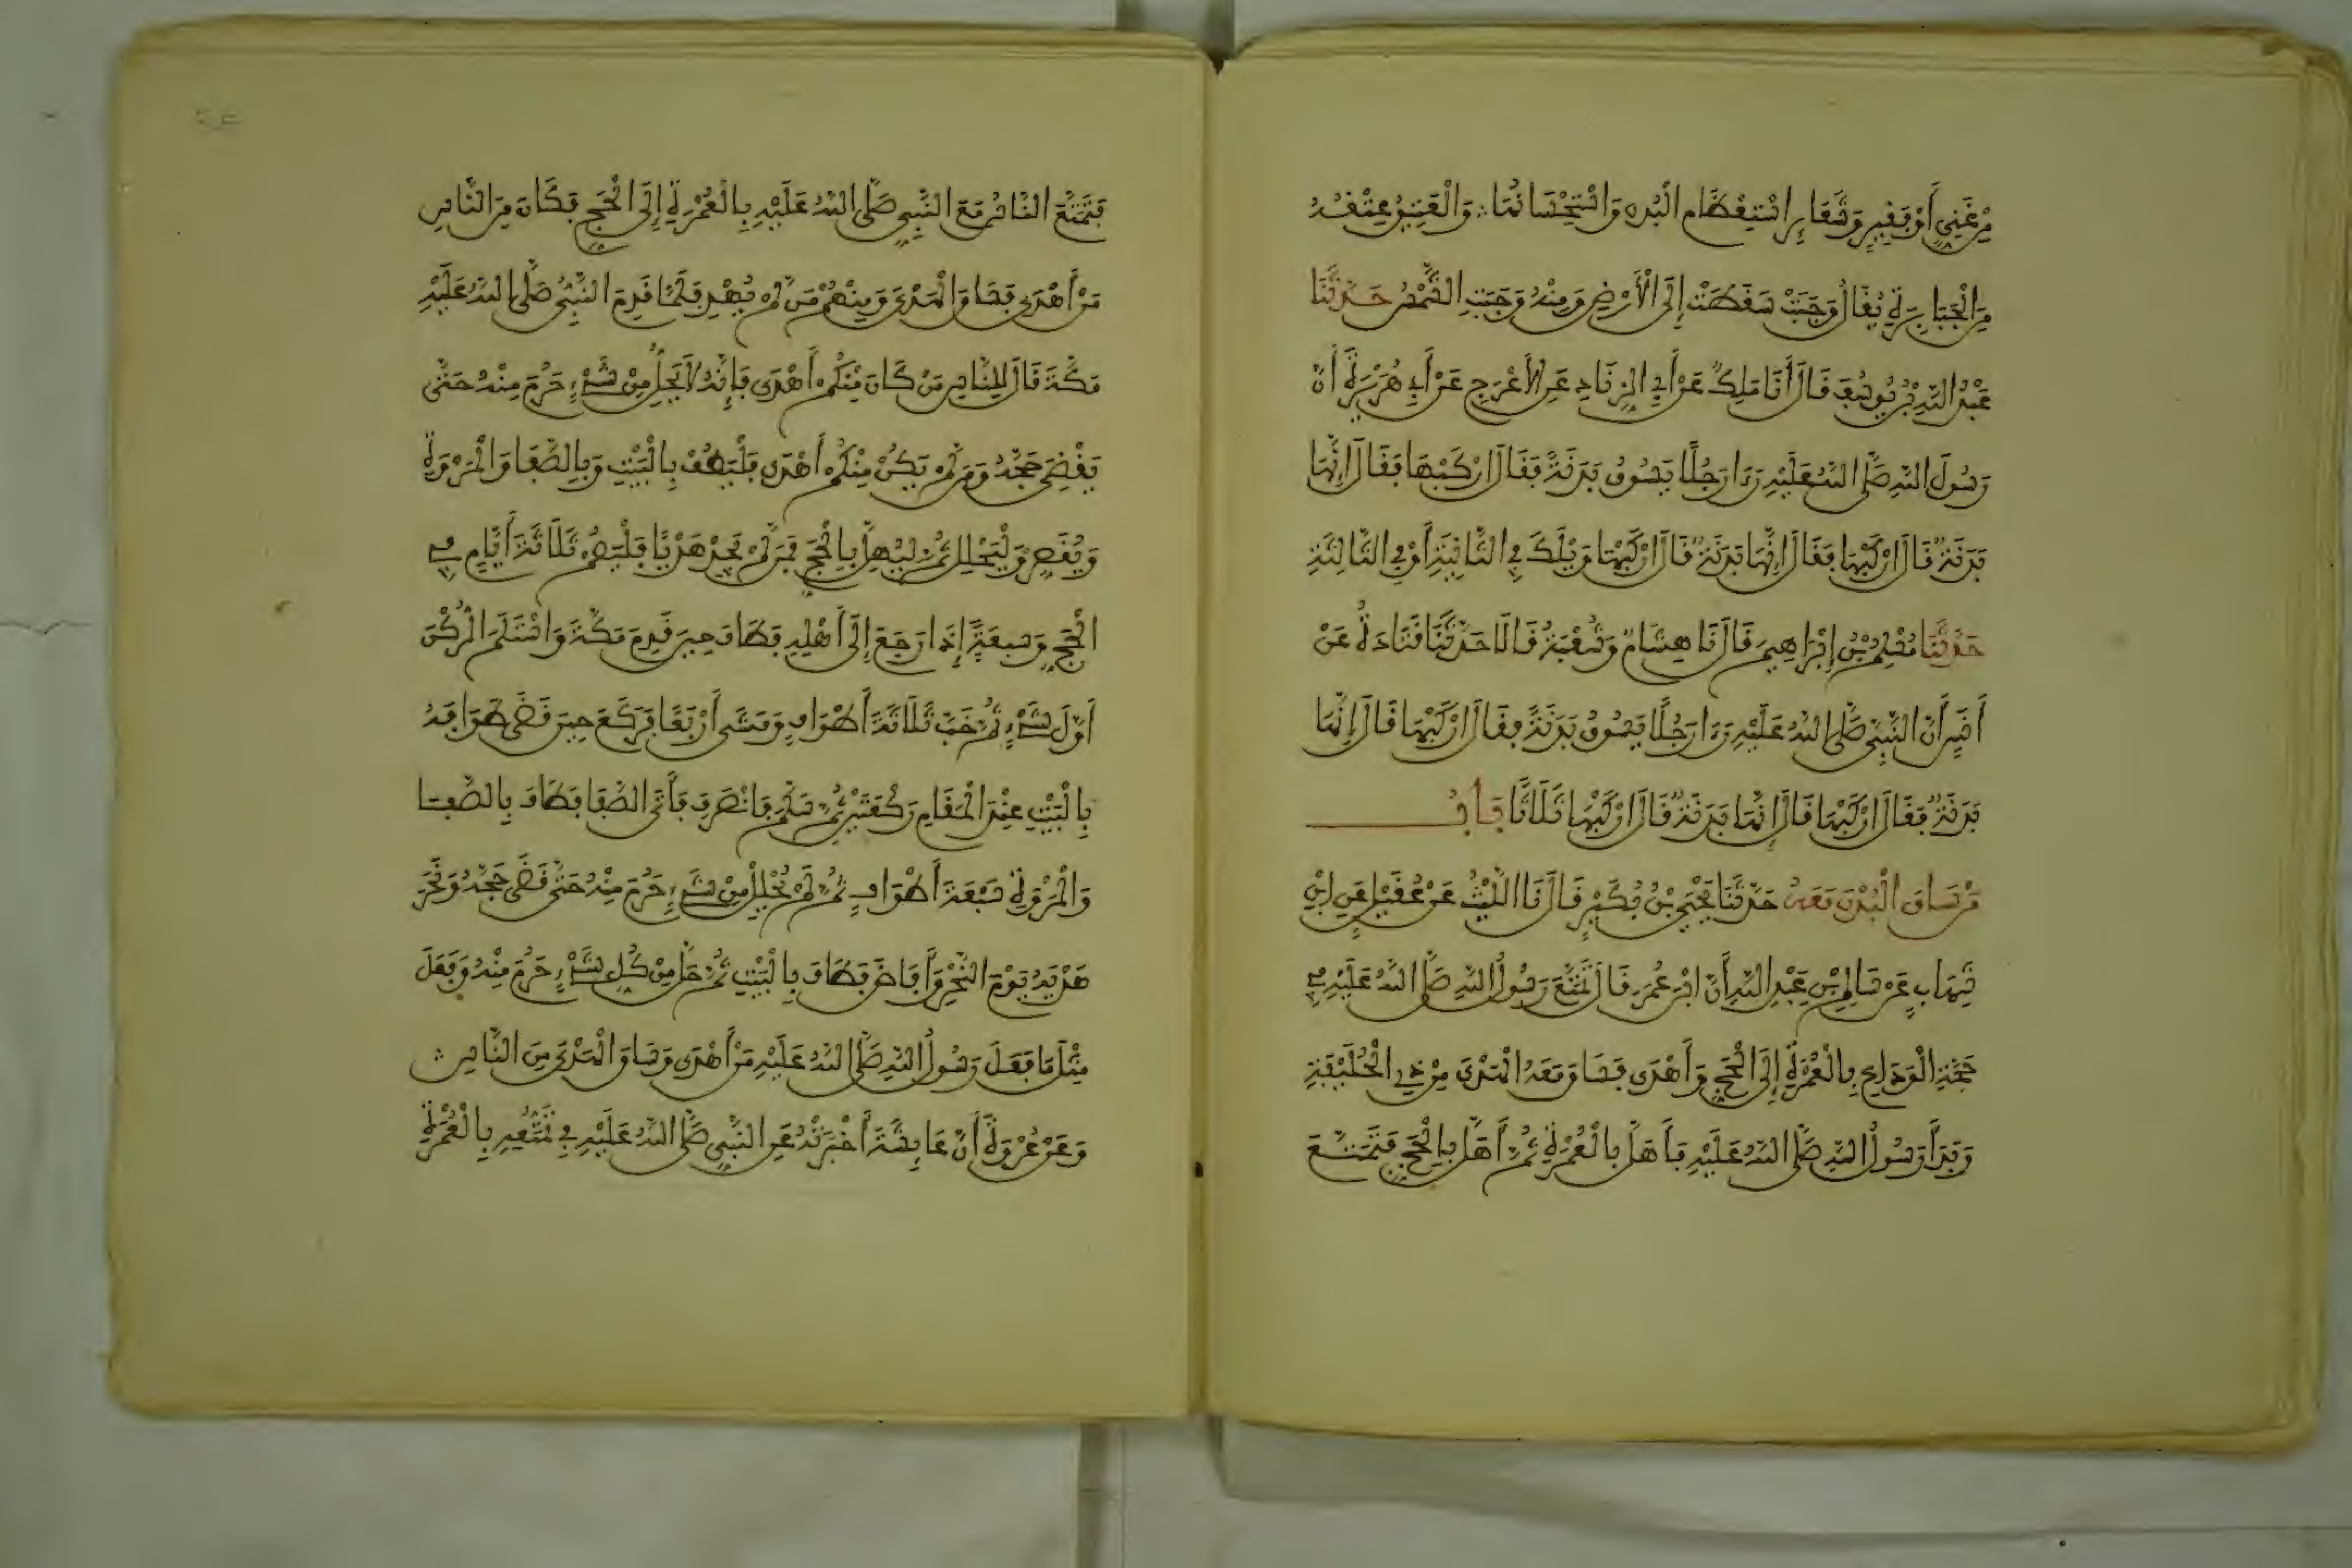 مِنْ غَنِيٍّ أَوْ فَقِيرٍ وَشَعَائِرُ اسْتِعْظَامُ الْبُدْنِ وَاسْتِحْسَانُهَا وَالْعَتِيقُ عِتْقُهُ
مِنَ الْجَبَابِرَةِ يُقَالُ وَجَبَتْ سَقَطَتْ إِلَى الْأَرْضِ وَمِنْهُ وَجَبَتِ الشَّمْسُ حَدَّثَنَا
عَبْدُ اللَّهِ بْنُ يُوسُفَ قَالَ أَنَا مَلِكٌ عَنْ أَبِي الزِّنَادِ عَنِ الْأَعْرَجِ عَنْ أَبِي هُرَيْرَةَ أَنَّ
رَسُولَ اللَّهِ صَلَّى اللَّهُ عَلَيْهِ رَءَا رَجُلًا يَسُوقُ بَدَنَةً فَقَالَ ارْكَبْهَا فَقَالَ إِنَّهَا
بَدَنَةٌ قَالَ ارْكَبْهَا فَقَالَ إِنَّهَا بَدَنَةٌ قَالَ ارْكَبْهَا وَيْلَكَ فِي الثَّانِيَةِ أَوْ فِي الثَّالِثَةِ
حَدَّثَنَا مُسْلِمُ بْنُ إِبْرَاهِيمَ قَالَ نَا هِشَامٌ وَشُعْبَةُ قَالَا حَدَّثَنَا قَتَادَةُ عَنْ
أَنَسٍ أَنَّ النَّبِيَّ صَلَّى اللَّهُ عَلَيْهِ رَءَا رَجُلًا يَسُوقُ بَدَنَةً فَقَالَ ارْكَبْهَا قَالَ إِنَّهَا
بَدَنَةٌ فَقَالَ ارْكَبْهَا قَالَ إِنَّهَا بَدَنَةٌ قَالَ ارْكَبْهَا ثَلَاثًا بَابُ
مَنْ سَاقَ الْبُدْنَ مَعَهُ حَدَّثَنَا يَحْيَى بْنُ بُكَيْرٍ قَالَ نَا اللَّيْثُ عَنْ عُقَيْلٍ عَنِ ابْنِ
شِهَابٍ عَنْ سَالِمِ بْنِ عَبْدِ اللَّهِ أَنَّ ابْنَ عُمَرَ قَالَ تَمَتَّعَ رَسُولُ اللَّهِ صَلَّى اللَّهُ عَلَيْهِ فِي
حَجَّةِ الْوَدَاعِ بِالْعُمْرَةِ إِلَى الْحَجِّ وَأَهْدَى فَسَاقَ مَعَهُ الْهَدْيَ مِنْ ذِي الْحُلَيْفَةِ
وَبَدَأَ رَسُولُ اللَّهِ صَلَّى اللَّهُ عَلَيْهِ فَأَهَلَّ بِالْعُمْرَةِ ثُمَّ أَهَلَّ بِالْحَجِّ فَتَمَتَّعَ
فَتَمَتَّعَ النَّاسُ مَعَ النَّبِيِّ صَلَّى اللَّهُ عَلَيْهِ بِالْعُمْرَةِ إِلَى الْحَجِّ فَكَانَ مِنَ النَّاسِ
مَنْ أَهْدَى فَسَاقَ الْهَدْيَ وَمِنْهُمْ مَنْ لَمْ يُهْدِ فَلَمَّا قَدِمَ النَّبِيُّ صَلَّى اللَّهُ عَلَيْهِ
مَكَّةَ قَالَ لِلنَّاسِ مَنْ كَانَ مِنْكُمْ أَهْدَى فَإِنَّهُ لَا يَحِلُّ مِنْ شَيْءٍ حَرُمَ مِنْهُ حَتَّى
يَقْضِيَ حَجَّهُ وَمَنْ لَمْ يَكُنْ مِنْكُمْ أَهْدَى فَلْيَطُفْ بِالْبَيْتِ وَبِالصَّفَا وَالْمَرْوَةِ
وَيُقَصِّرْ وَلْيَحْلِلْ ثُمَّ لْيُهِلَّ بِالْحَجِّ فَمَنْ لَمْ يَجِدْ هَدْيًا فَلْيَصُمْ ثَلَاثَةَ أَيَّامٍ فِي
الْحَجِّ وَسَبْعَةً إِذَا رَجَعَ إِلَى أَهْلِهِ فَطَافَ حِينَ قَدِمَ مَكَّةَ وَاسْتَلَمَ الرُّكْنَ
أَوَّلَ شَيْءٍ ثُمَّ خَبَّ ثَلَاثَةَ أَطْوَافٍ وَمَشَى أَرْبَعًا فَرَكَعَ حِينَ قَضَى طَوَافَهُ
بِالْبَيْتِ عِنْدَ الْمَقَامِ رَكْعَتَيْنِ ثُمَّ سَلَّمَ فَانْصَرَفَ فَأَتَى الصَّفَا فَطَافَ بِالصَّفَا
وَالْمَرْوَةِ سَبْعَةَ أَطْوَافٍ ثُمَّ لَمْ يَحْلِلْ مِنْ شَيْءٍ حَرُمَ مِنْهُ حَتَّى قَضَى حَجَّهُ وَنَحَرَ
هَدْيَهُ يَوْمَ النَّحْرِ وَأَفَاضَ فَطَافَ بِالْبَيْتِ ثُمَّ حَلَّ مِنْ كُلِّ شَيْءٍ حَرُمَ مِنْهُ وَفَعَلَ
مِثْلَ مَا فَعَلَ رَسُولُ اللَّهِ صَلَّى اللَّهُ عَلَيْهِ مَنْ أَهْدَى وَسَاقَ الْهَدْيَ مِنَ النَّاسِ
وَعَنْ عُرْوَةَ أَنَّ عَايِشَةَ أَخْبَرَتْهُ عَنِ النَّبِيِّ صَلَّى اللَّهُ عَلَيْهِ فِي تَمَتُّعِهِ بِالْعُمْرَةِ